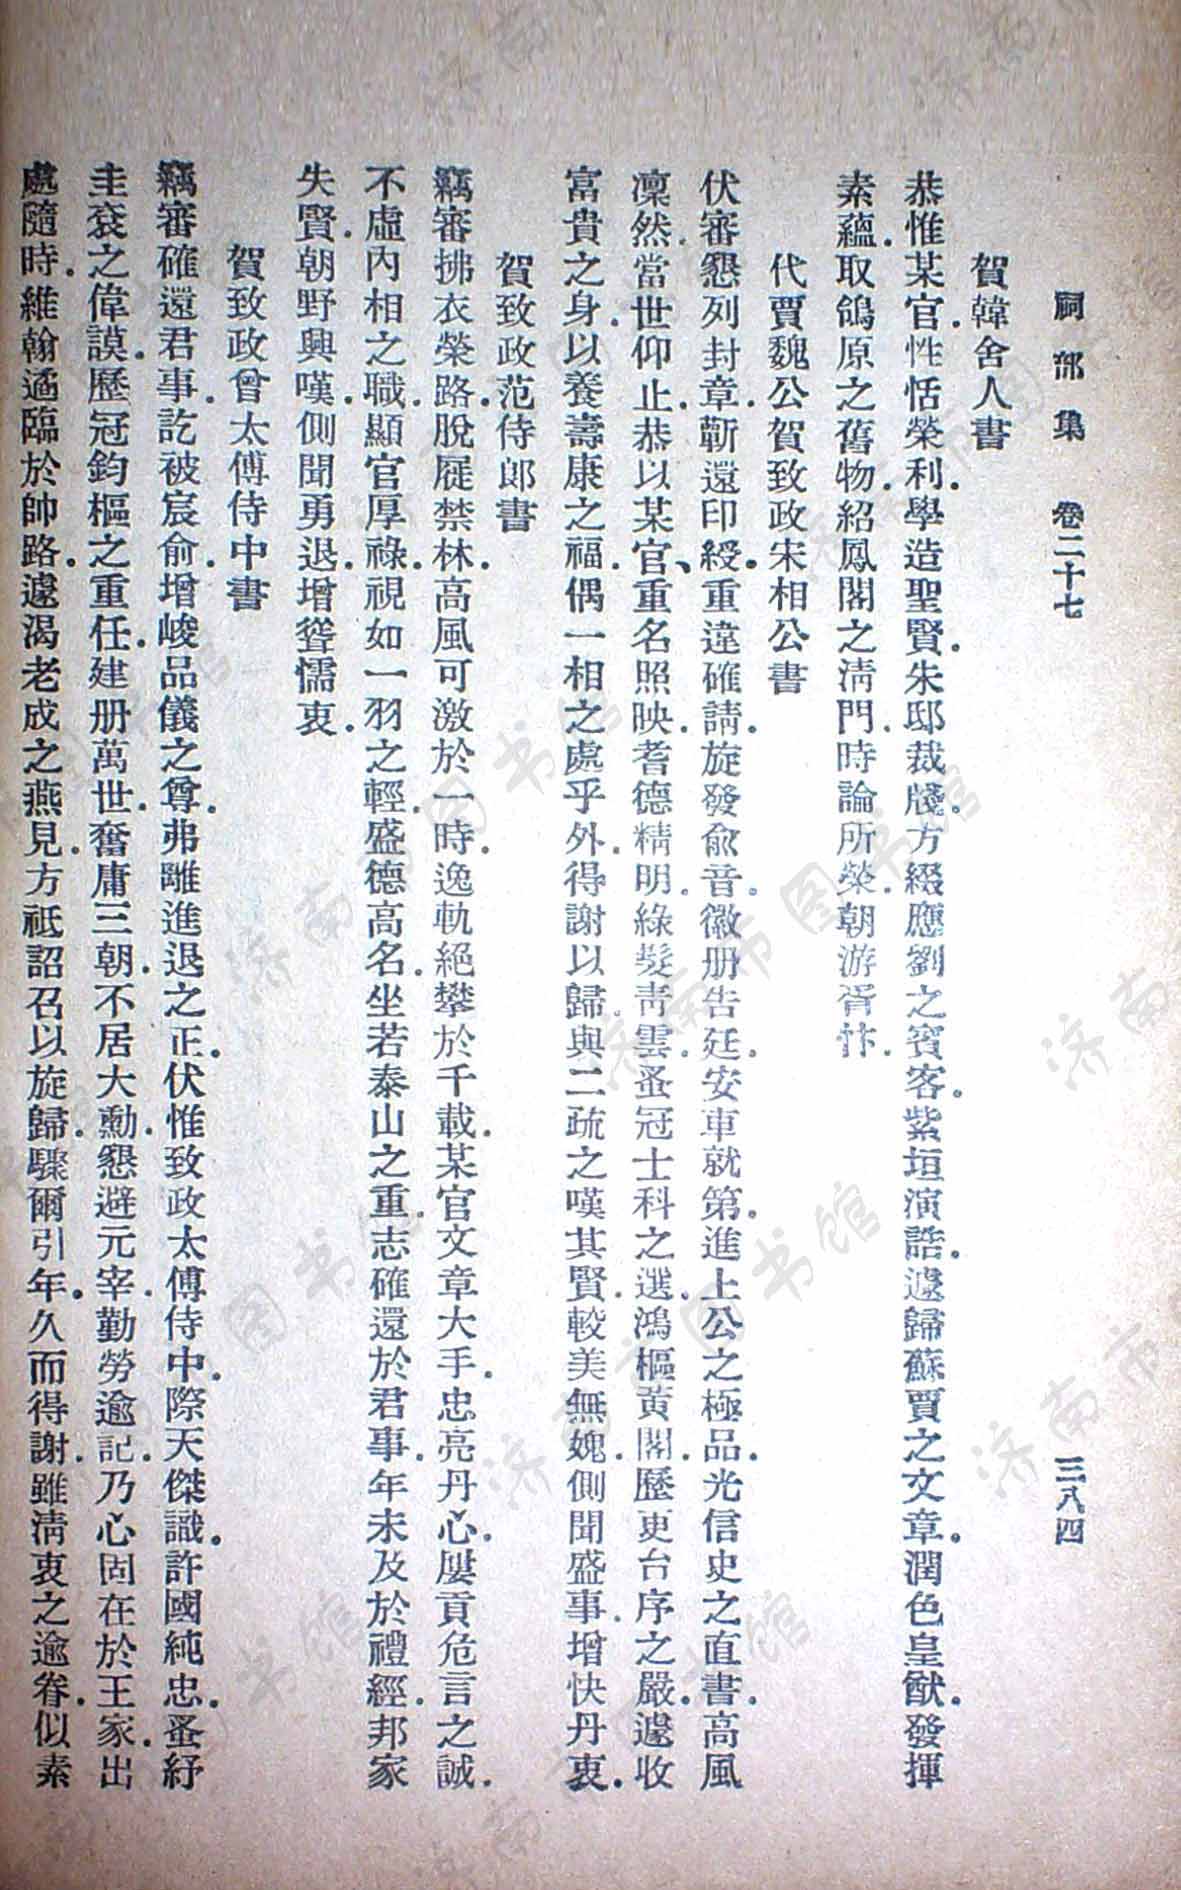 祠部集　卷二十七　三八四
賀韓舍人書
恭惟某官．性恬榮利．學造聖賢．朱邸裁牋．方綴應劉之賓客．紫垣演誥．遽歸蘇賈之文章．潤色皇猷．發揮
素蘊．取鴒原之舊物．紹鳳閣之淸門．時論所榮．朝游胥忭．
代賈魏公賀致政宋相公書
伏審懇列封章．蘄還印綬．重違確請．旋發兪音．徽册告廷．安車就第．進上公之極品．光信史之直書．高風
凜然．當世仰止．恭以某官、重名照映．耆德精明．綠髮靑雲．蚤冠士科之選．鴻樞黃閣．歷更台序之嚴．遽收
富貴之身．以養壽康之福．偶一相之處乎外．得謝以歸．與二疏之嘆其賢．較美無媿．側聞盛事．增快丹衷．
賀致政范侍郞書
竊審拂衣榮路．脫屣禁林．高風可激於一時．逸軌絕攀於千載．某官文章大手．忠亮丹心．屢貢危言之誠．
不虛內相之職．顯官厚祿．視如一羽之輕．盛德高名．坐若泰山之重．志確還於君事．年未及於禮經．邦家
失賢．朝野興嘆．側聞勇退．增聳懦衷．
賀致政曾太傅侍中書
竊審確還君事．訖被宸俞．增峻品儀之尊．弗雕進退之正．伏惟致政太傅侍中．際天傑識．許國純忠．蚤紓
圭袞之偉謨．歷冠鈞樞之重任．建册萬世．奮庸三朝．不居大勳．懇避元宰．勤勞逾記．乃心固在於王家．出
處隨時．維翰遹臨於帥路．遽渴老成之燕見．方祗詔召以旋歸．驟爾引年．久而得謝．雖淸衷之逾眷．似素